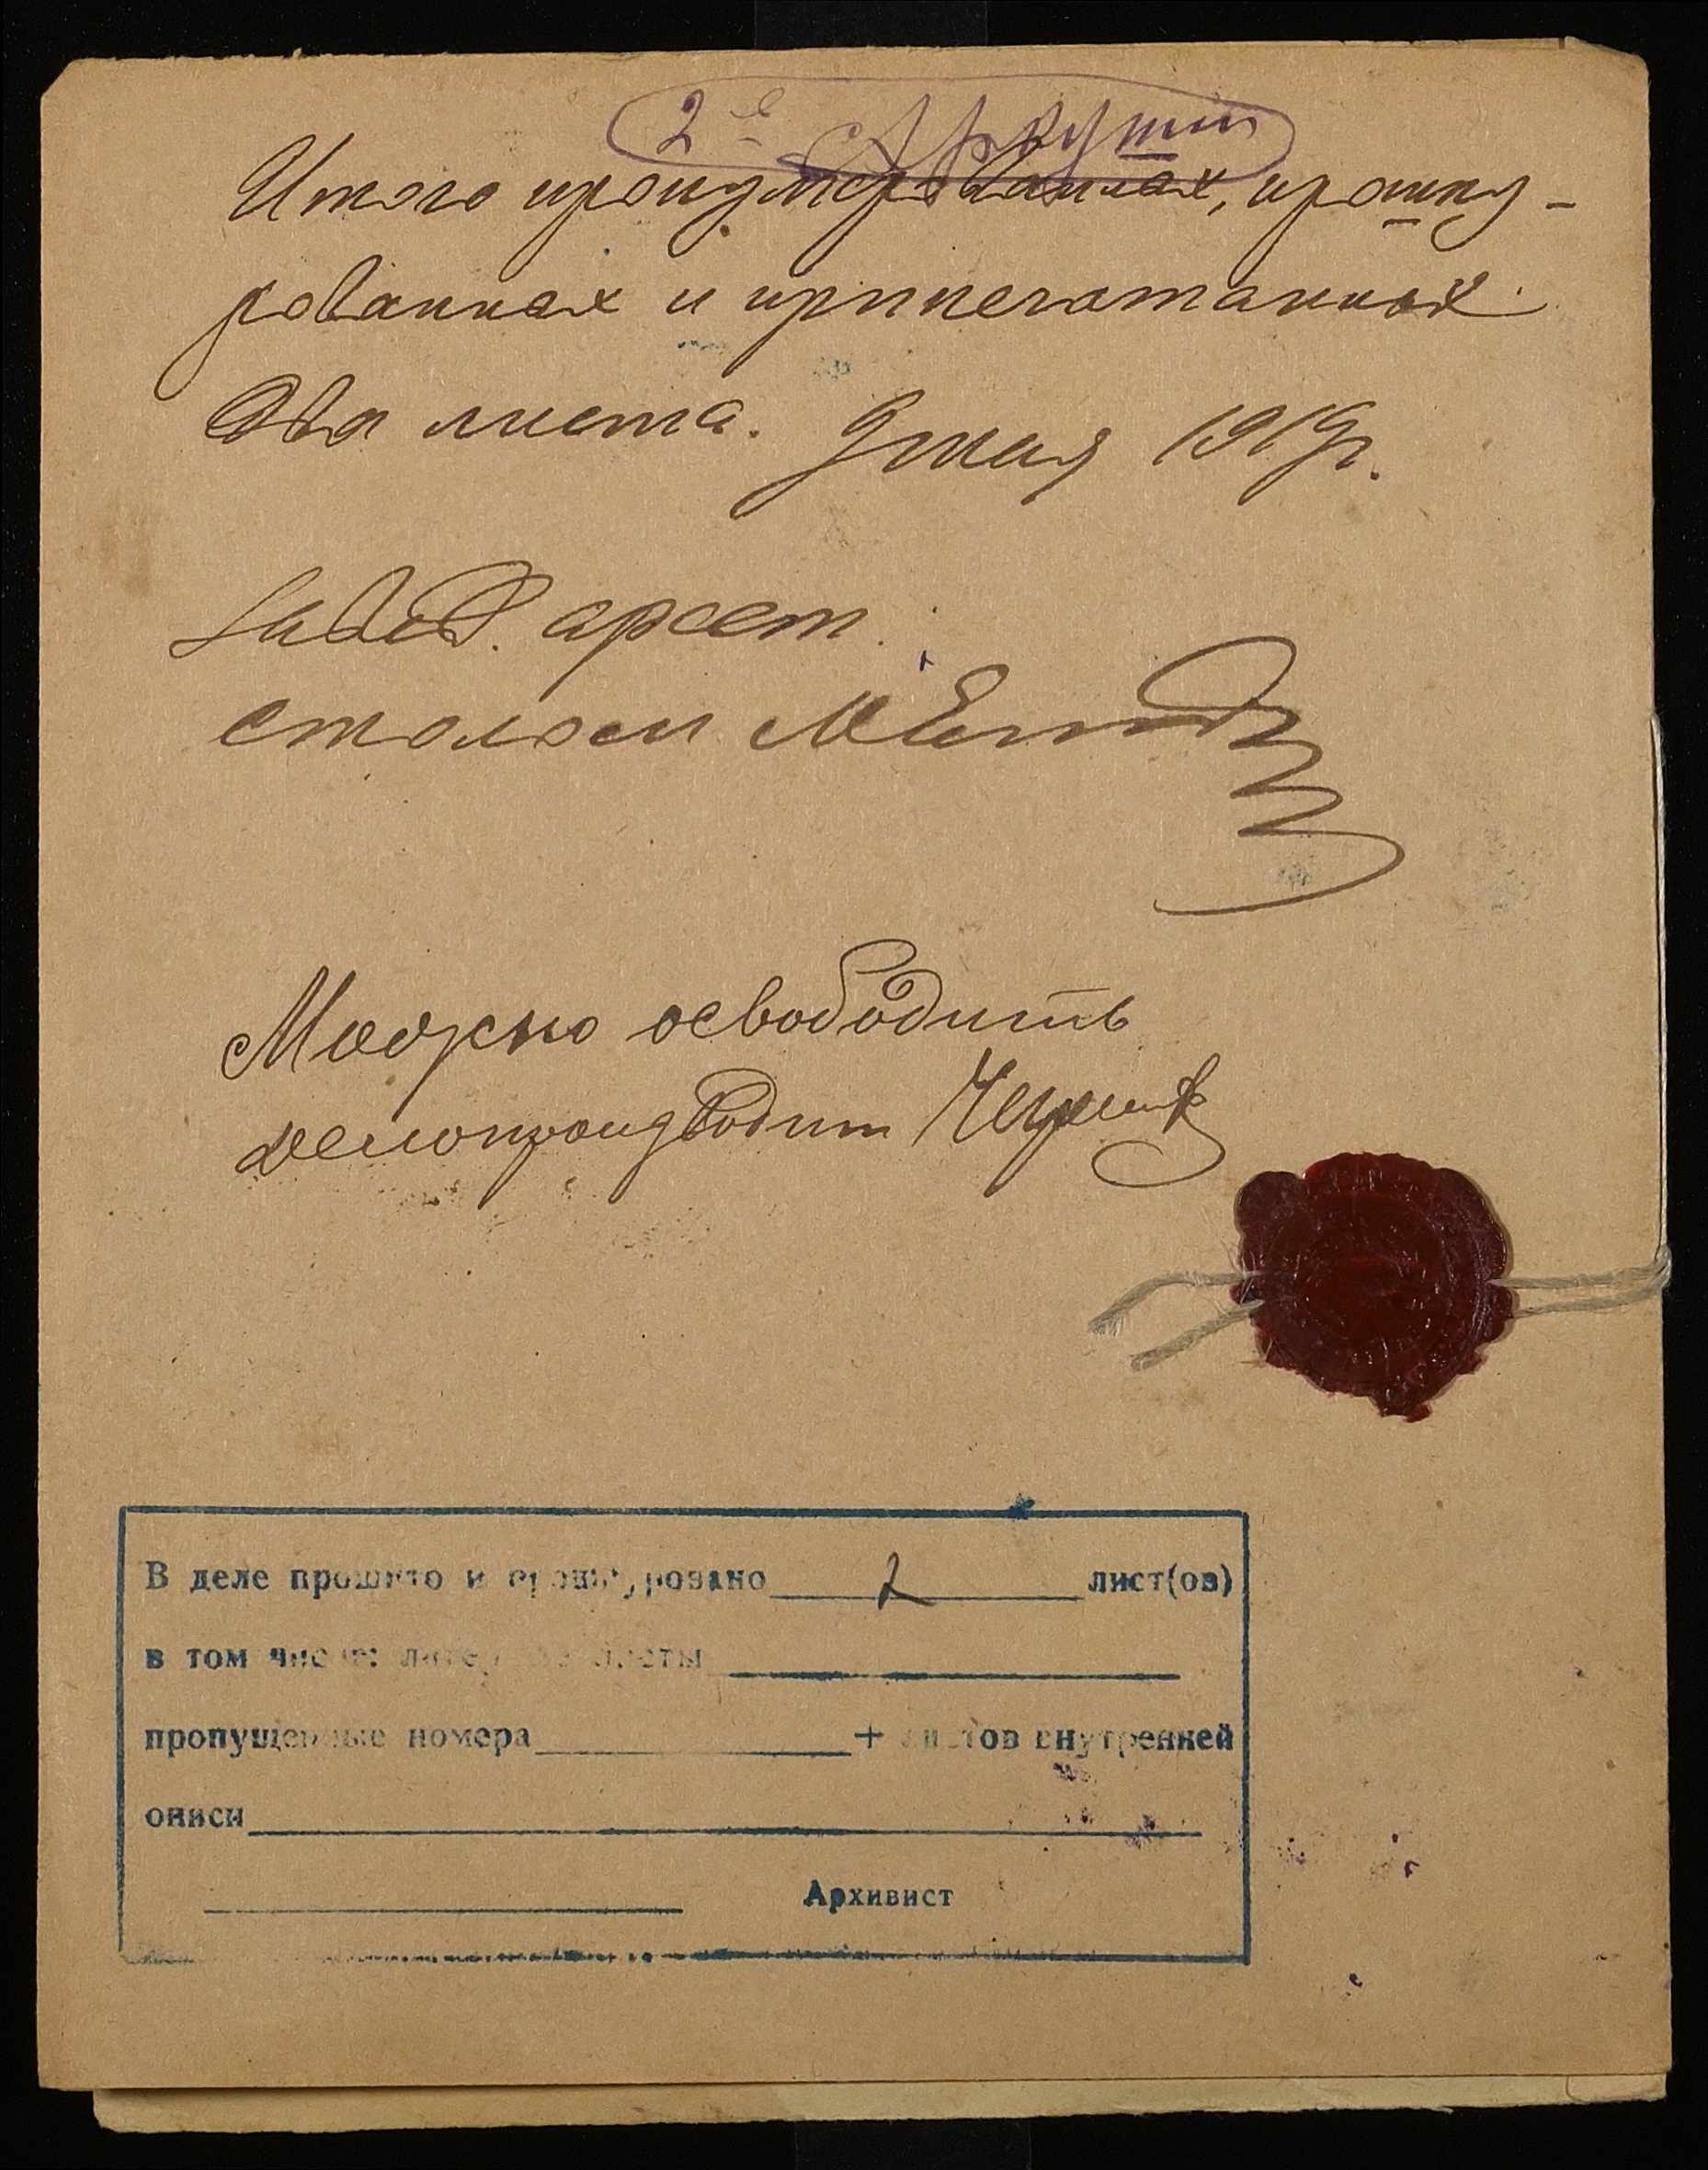 2е
Итого пронумерованных, прошну-
рованных и припечатанных
Два листа. 9 мая 1919г.
Завед. арест.
столом
Можно освободить
делопроизводит
В деле прошито и пронумеровано 2 лист(ов)
в том числе: литерные листы
пропущенные номера + листов внутренней
описи
Архивист